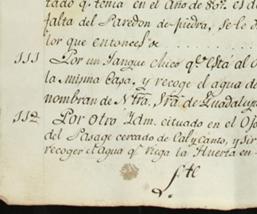 tado q.e tenia en el Año de 85.. es de
falta del Paredon de piedra, se le d
lor que entonces se
111 Por un Tanque chico q.e esta al O
la misma Casa, y recoge el agua de
nombran de Ntra. Sra. de Guadalup
112 Por otro Idm. cituado en el Ojo
del Pasage cercado de Cal y Canto, y sir
recoger el agua q.e riega la Huerta en